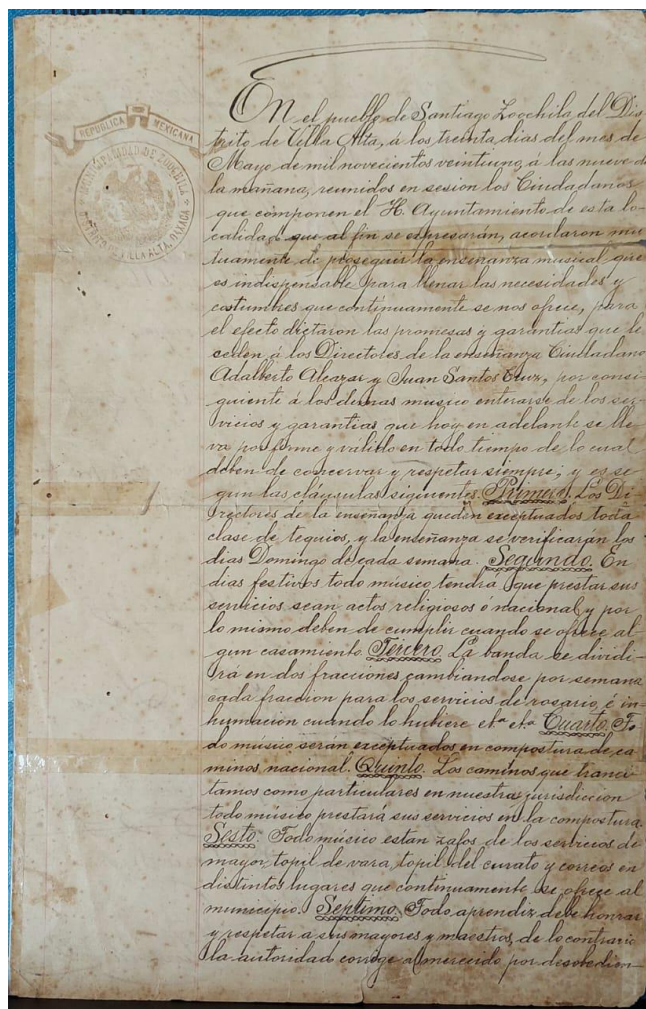 REPUBLICA MEXICANA
MUNICIPALIDAD DE ZOOCHILA
VILLA ALTA, OAXACA
En el pueblo de Santiago Zoochila, del Dis-
trito de Villa Alta, á los treinta dias del mes de
Mayo de mil novecientos veintiuno, á las nueve de
la mañana, reunidos en sesion los Ciudadanos
que componen el H. Ayuntamiento de esta lo-
calidad que al fin se espresarán, acordaron mu-
tuamente de proseguir la enseñanza musical que
es indispensable para llenar las necesidades y
costumbres que continuamente se nos ofrece, para
el efecto dictaron las promesas y garantias que le
ceden á los Directores de la enseñanza Ciudadano
Adalberto Alcazar y Juan Santos Cruz, por consi-
guiente á los demas musico enterarse de los ser-
vicios y garantias que hoy en adelante se lle-
va por firme y válido en todo tiempo de lo cual
deben de concervar y respetar siempre; y es se-
gun las cláusulas siguientes. Primero. Los Di-
rectores de la enseñanza queden exceptuados toda
clase de tequios, y la enseñanza se verificarán los
dias Domingo de cada semana. Segundo. En
dias festivos todo músico tendrá que prestar sus
servicios sean actos religiosos o nacional, y por
lo mismo deben de cumplir cuando se ofrece al-
gun casamiento. Tercero. La banda se dividi-
rá en dos fracciones cambiandose por semana
cada fraccion para los servicios de rosario, é in-
humación cuando lo hubiere etª. etª. Cuarto. To-
do músico seran exceptuados en compostura de ca-
minos nacional. Quinto. Los caminos que tranci-
tamos como particulares en nuestra jurisdiccion
todo músico prestará sus servicios en la compostura.
Sesto. Todo músico estan zafos de los servicios de
mayor, topil de vara, topil del curato y correos en
distintos lugares que continuamente se ofrece al
municipio. Septimo. Todo aprendiz debe honrar
y respetar a sus mayores y maestros, de lo contrario
la autoridad corrige al merecido por desobedien-